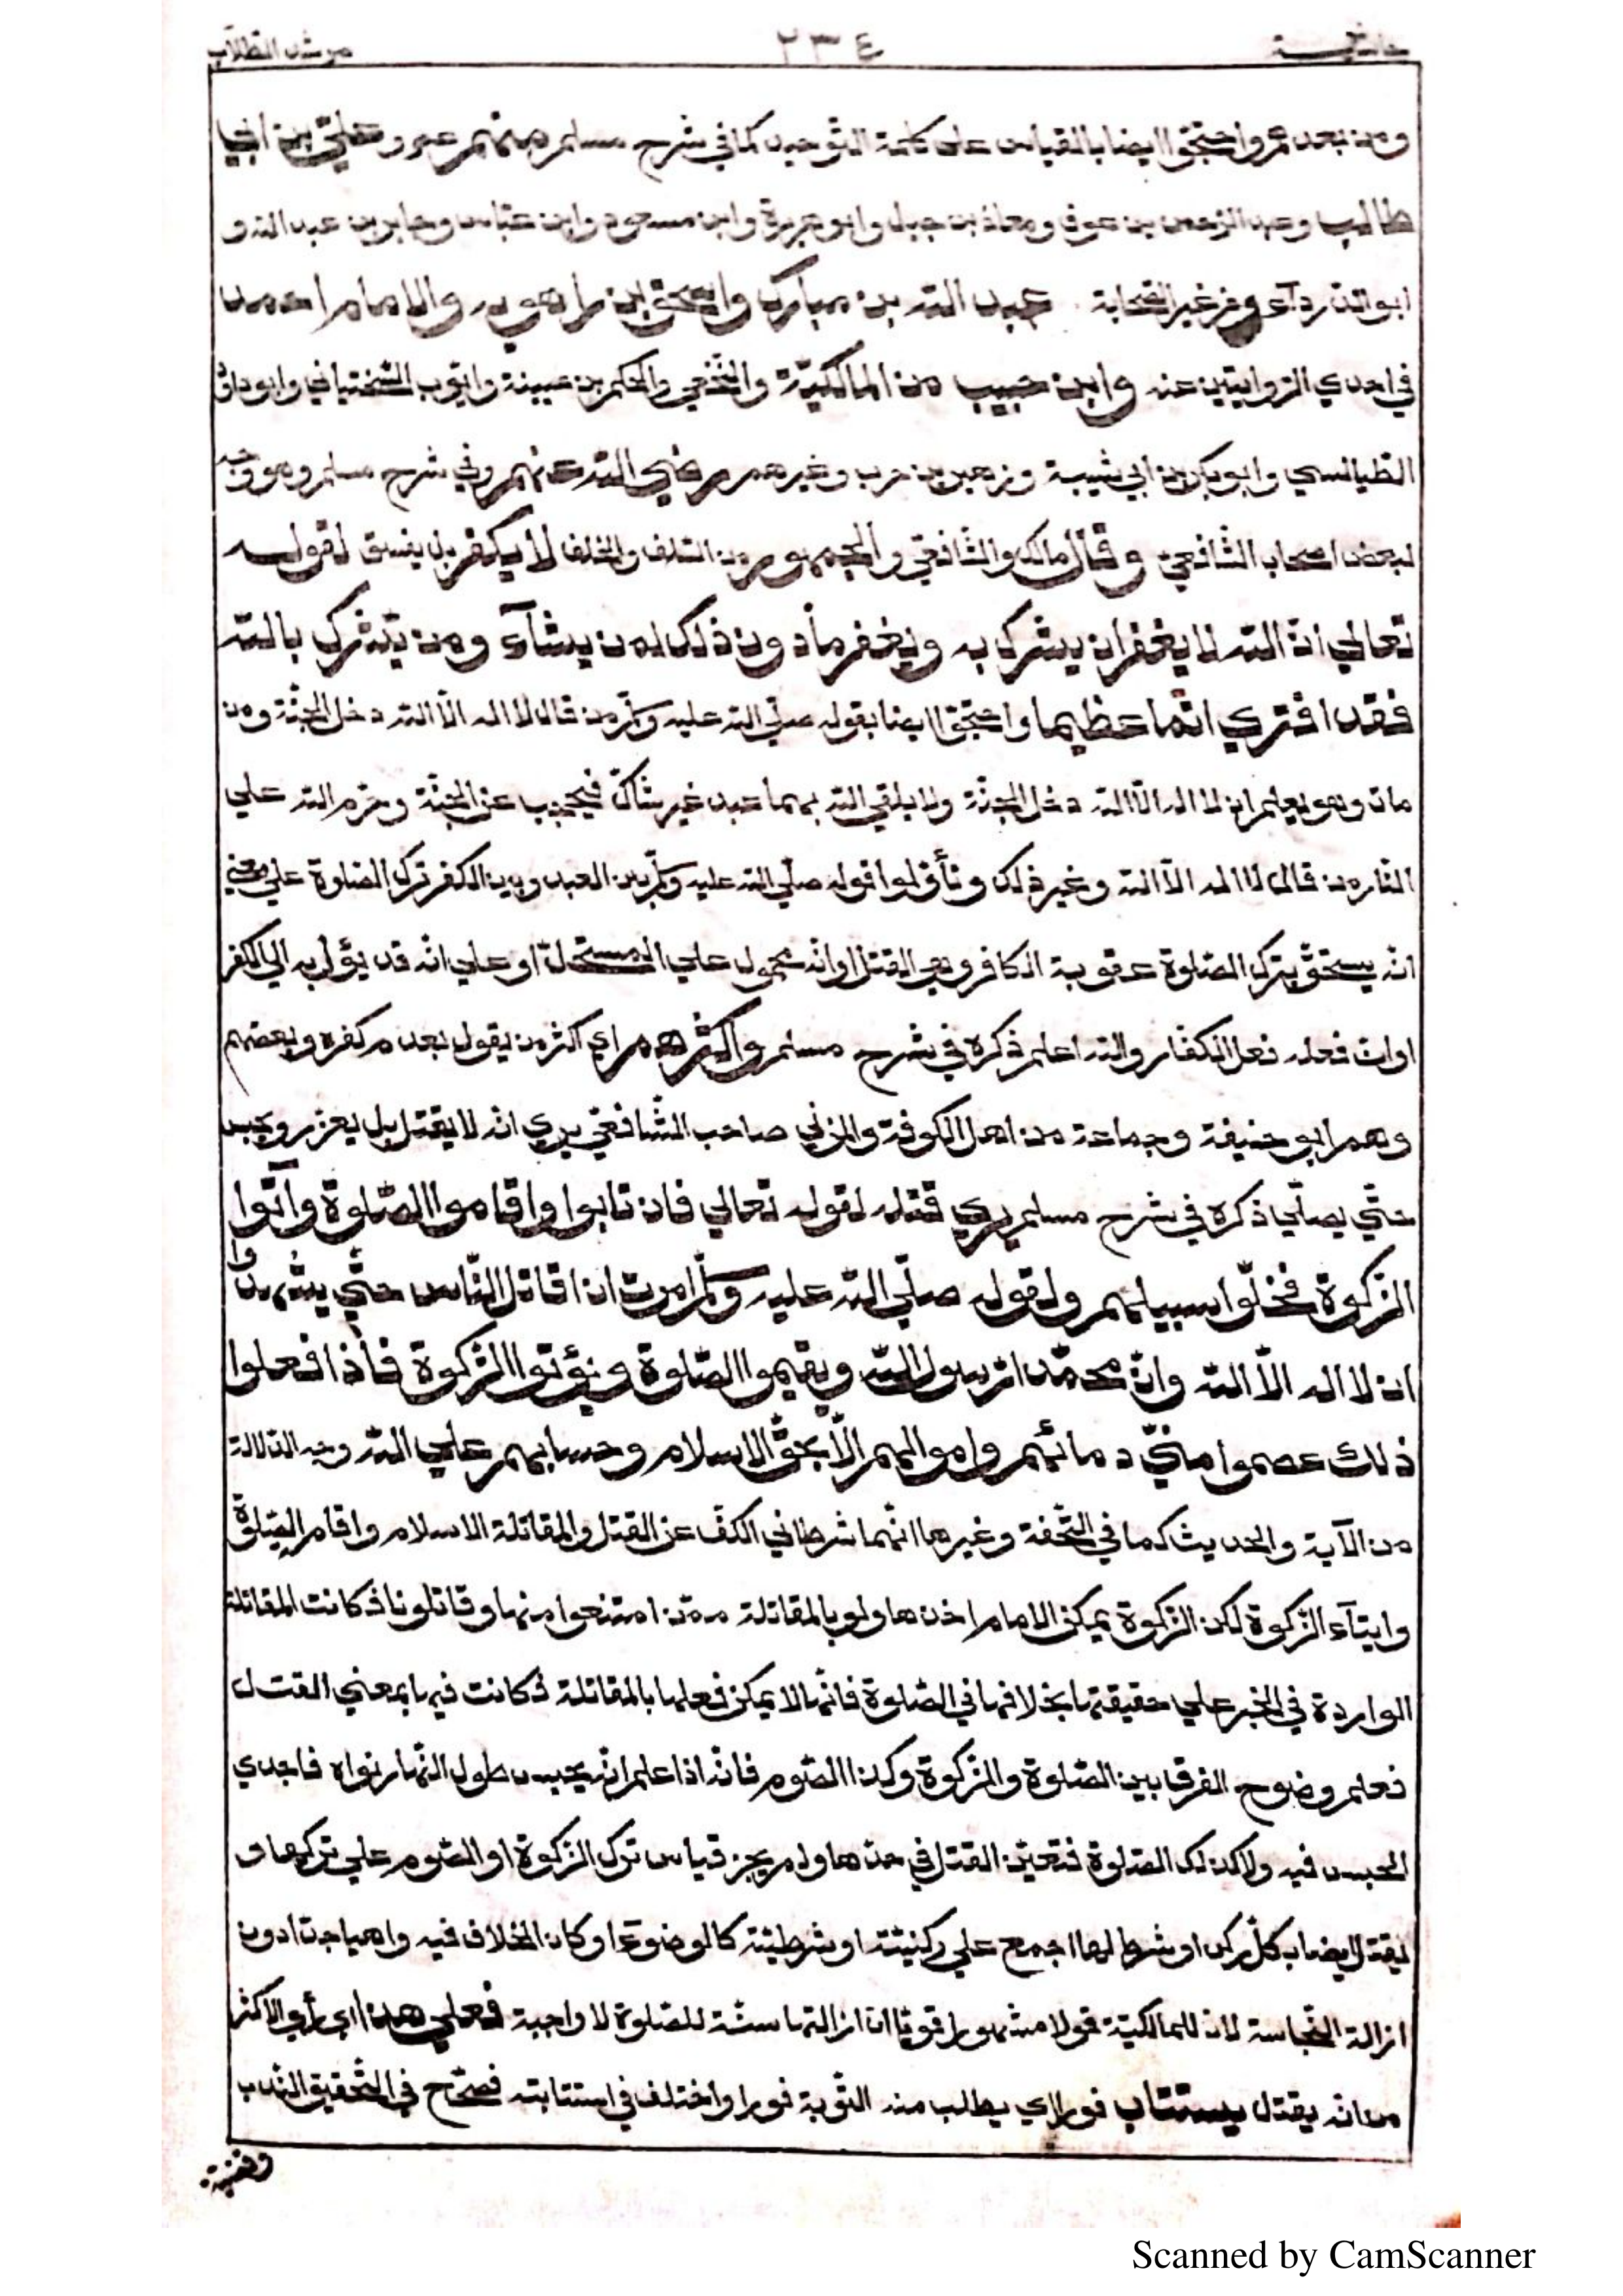 حاشية ٢٣٤ مرشد الطلاب
ومن بعدهم واحتجّوا ايضا بالقياس على كلمة التّوحيد كما في شرح مسلم منهم عمر وعليّ بن ابي
طالب وعبد الرّحمن بن عوف ومعاذ بن جبل وابو هريرة وابن مسعود وابن عبّاس وجابر بن عبد الله و
ابو الدّرداء ومن غير الصّحابة عبد الله بن مبارك واسحق بن راهويه والامام احمد
في احدي الرّوايتين عنه وابن حبيب من المالكيّة والنّخعي والحكم بن عيينة وايّوب السّختياني وابو داود
الطّيالسي وابو بكر بن ابي شيبة وزهير بن حرب وغيرهم رضي الله عنهم وفي شرح مسلم وهو وجه
لبعض اصحاب الشّافعيّ وقال مالك والشّافعي والجمهور من السّلف والخلف لا يكفر بل يفسق لقوله
تعالي انّ الله لا يغفر ان يشرك به ويغفر ما دون ذلك لمن يشآء ومن يشرك بالله
فقد افتري اثما عظيما واحتجّوا ايضا بقوله صلّي الله عليه وسلّم من قال لا اله الّا الله دخل الجنّة ومن
مات وهو يعلم ان لا اله الّا الله دخل الجنّة ولا يلقي الله بهما عبد غير شاكّ فيحجب عن الجنّة وحرّم الله علي
النّار من قال لا اله الّا الله وغير ذلك وتأوّلوا قوله صلّي الله عليه وسلّم بين العبد وبين الكفر ترك الصّلوة علي معني
انّه يستحقّ بترك الصّلوة عقوبة الكافر وهي القتل او انّه محمول علي المستحلّ او علي انّه قد يؤل به الي الكفر
او انّ فعله فعل الكفّار والله اعلم ذكره في شرح مسلم واكثرهم اي اكثر من يقول بعدم كفره وبعضهم
وهم ابو حنيفة وجماعة من اهل الكوفة والمزني صاحب الشّافعيّ يري انّه لا يقتل بل يعزر ويحبس
حتّي يصلّي ذكره في شرح مسلم يري قتله لقوله تعالي فان تابوا واقاموا الصّلوة وآتوا
الزّكوة فخلّوا سبيلهم ولقوله صلّي الله عليه وسلّم امرت ان اقاتل النّاس حتّي يشهدوا
ان لا اله الّا الله وانّ محمّدا رسول الله ويقيموا الصّلوة ويؤتوا الزّكوة فاذا فعلوا
ذلك عصموا منّي دمائهم واموالهم الّا بحقّ الاسلام وحسابهم علي الله وجه الدّلالة
من الآية والحديث كما في التّحفة وغيرها انّهما شرطا في الكفّ عن القتل والمقاتلة الاسلام واقام الصّلوة
وايتآء الزّكوة لكن الزّكوة يمكن الامام اخذها ولو بالمقاتلة ممّن امتنعوا منها وقاتلونا فكانت المقاتلة
الواردة في الخبر علي حقيقتها بخلافها في الصّلوة فانّها لا يمكن فعلها بالمقاتلة فكانت فيها بمعني القتل
فعلم وضوح الفرق بين الصّلوة والزّكوة وكذا الصّوم فانّه اذا علم انّه يحبس طول النّهار نواه فاجدي
الحبس فيه ولا كذلك الصّلوة فتعيّن القتل في حدّها ولم يجز قياس ترك الزّكوة او الصّوم علي تركها و
يقتل ايضا بكلّ ركن او شرط لها اجمع علي ركنيّته او شرطيّته كالوضوء او كان الخلاف فيه واهيا جدّا دون
ازالة النّجاسة لانّ للمالكيّة قولا مشهورا قويّا انّ ازالتها سنّة للصّلوة لا واجبة فعلي هذا اي رأي الاكثر
من انّه يقتل يستتاب فورا اي يطلب منه التّوبة فورا واختلف في استتابته فصحّح في التّحقيق النّدب